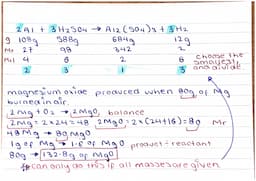 2Al + 3H2SO4 → Al2(SO4)3 + 3H2
g 108g 588g 684g 12g
Mr 27 98 342 2
Mol 4 6 2 6 choose the
2 3 1 3 smallest
and divide
magnesium oxide produced when 80g of Mg
burned in air.
2Mg + O2 → 2MgO balance
2Mg = 2×24 = 48 2MgO = 2×(24+16) = 80 Mr
48Mg → 80MgO
1g of Mg → 1.6 of MgO product ÷ reactant
80g → 132.8g of MgO
*can only do this if all masses are given